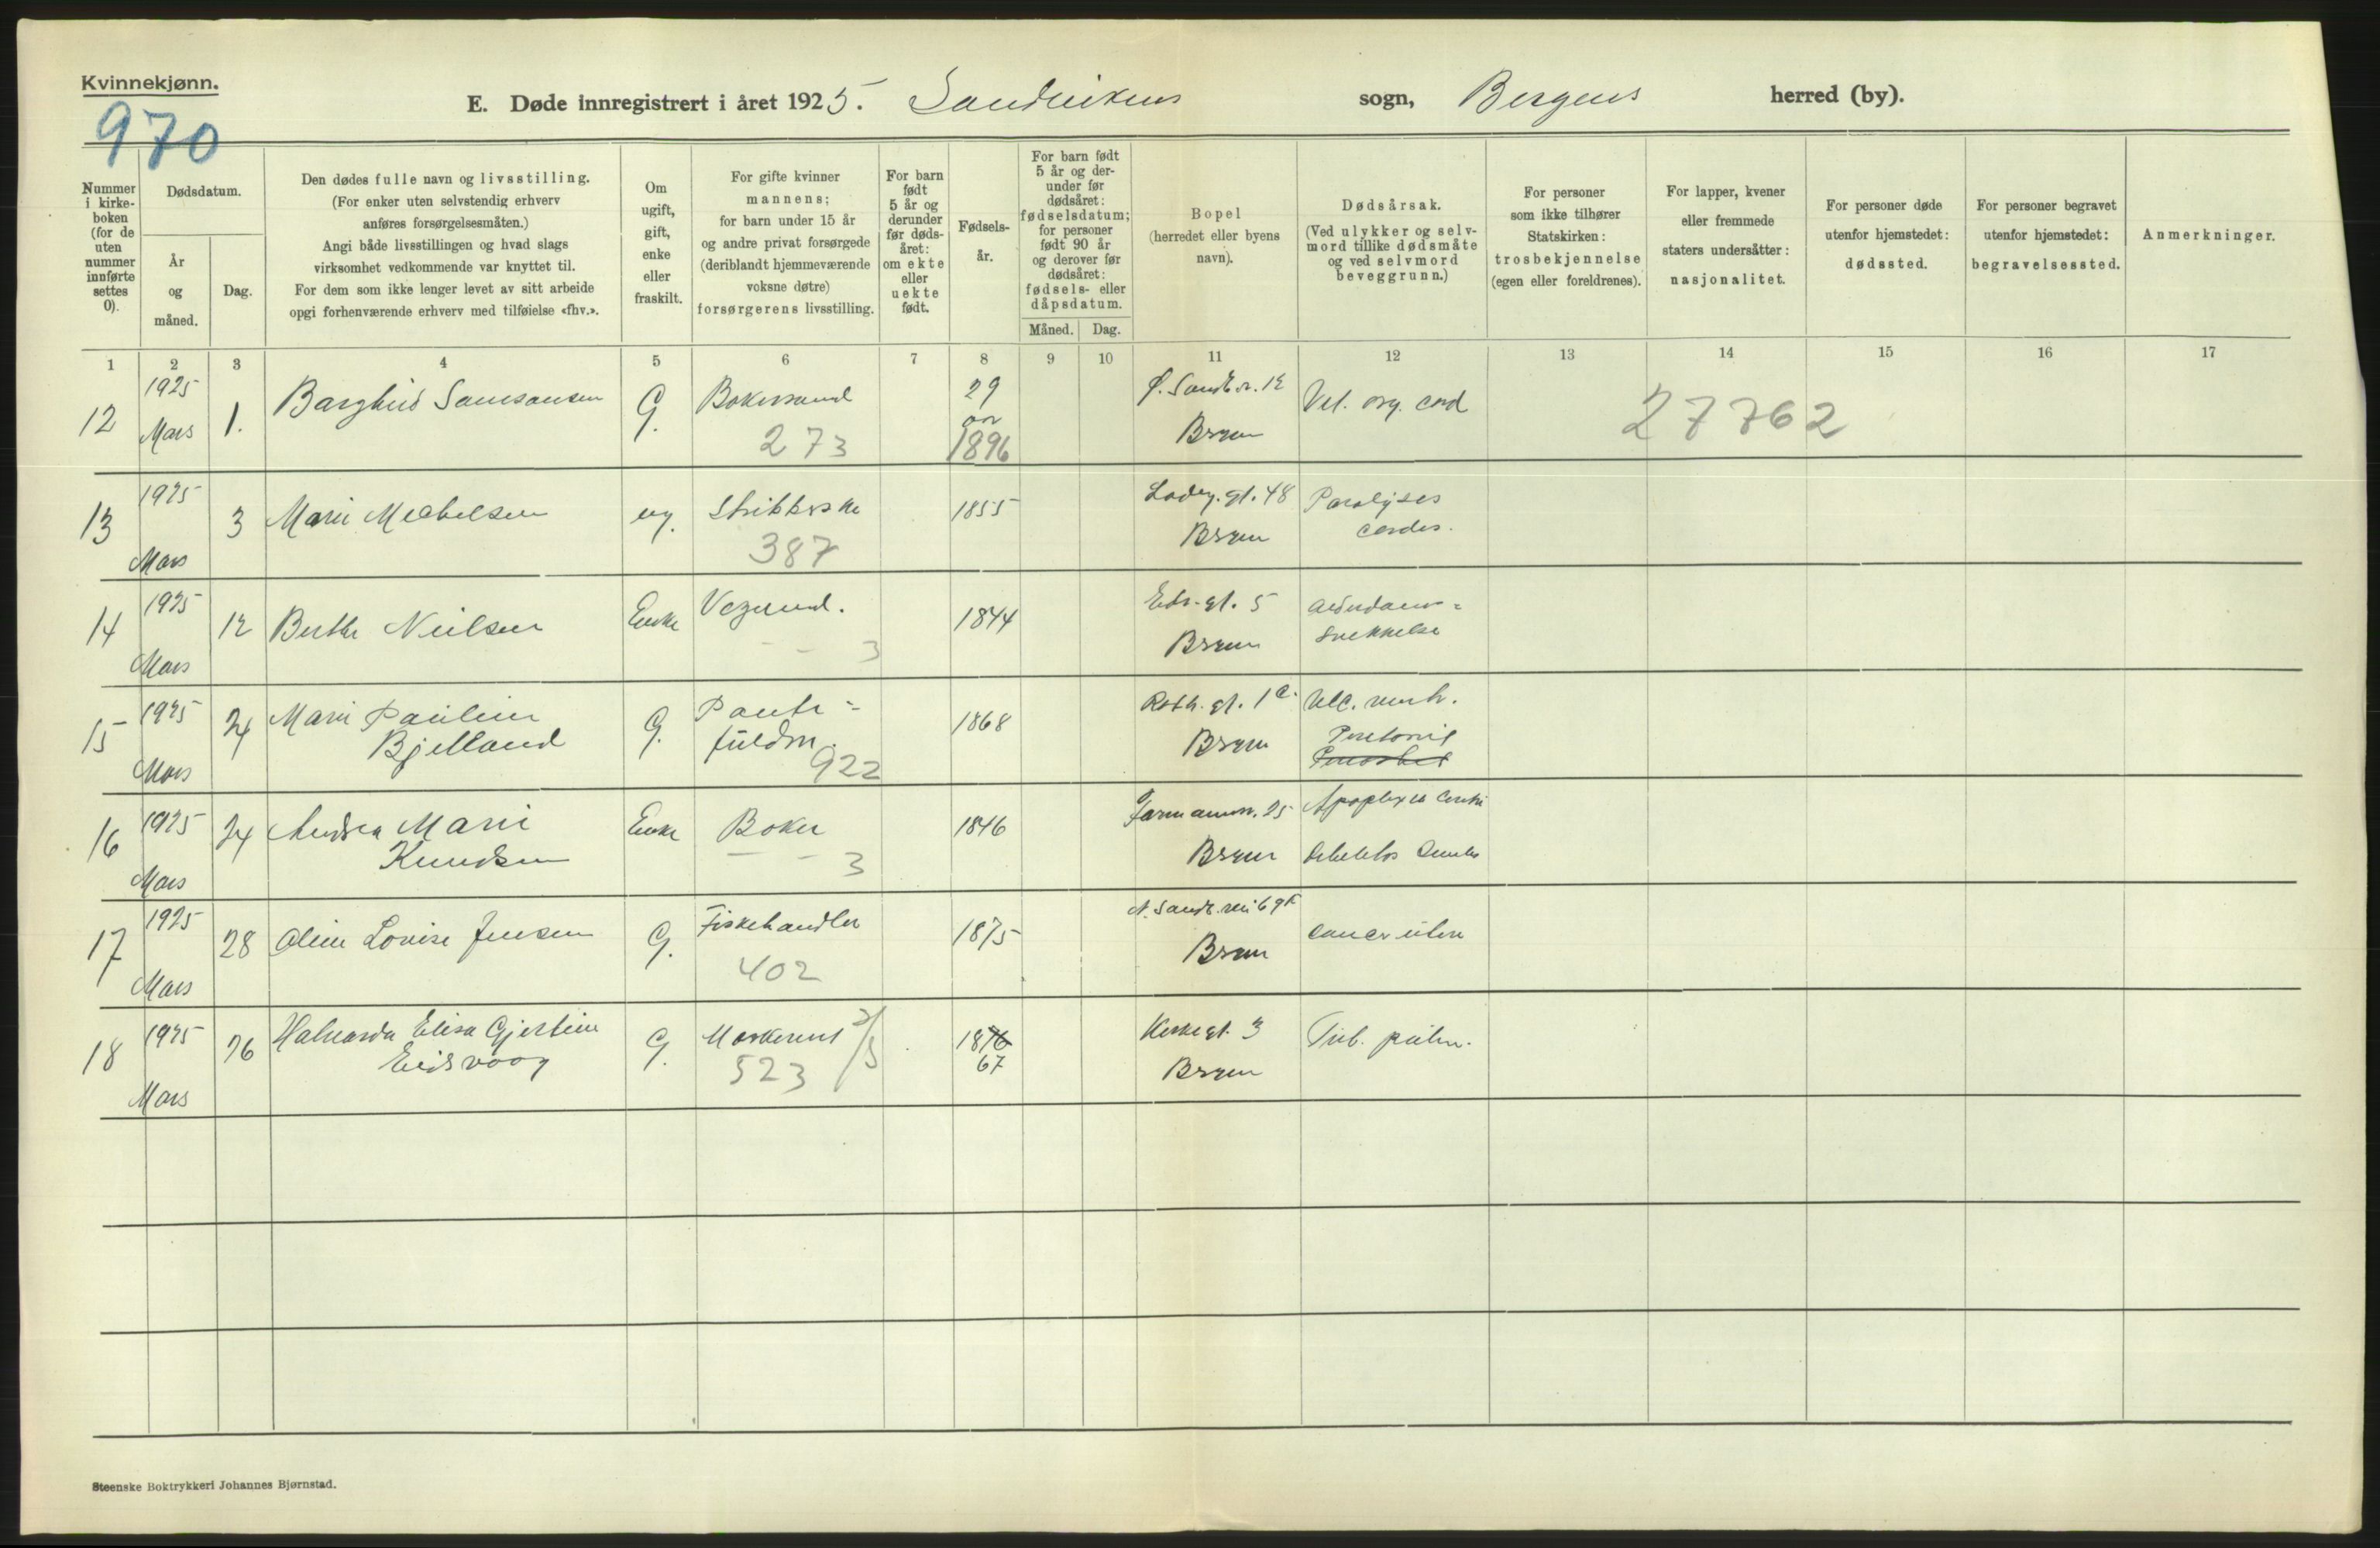 Kvinnekjønn.
970
E. Døde innregistrert i året 1925. Sandvikens sogn, Bergens herred (by).
Nummer i kirke-boken (for de uten nummer innførte settes 0).
Dødsdatum.
År og måned.
Dag.
Den dødes fulle navn og livsstilling.
(For enker uten selvstendig erhverv
anføres forsørgelsesmåten.)
Angi både livsstillingen og hvad slags
virksomhet vedkommende var knyttet til.
For dem som ikke lenger levet av sitt arbeide
opgi forhenværende erhverv med tilføielse «fhv.».
Om ugift, gift, enke eller fraskilt.
For gifte kvinner
mannens;
for barn under 15 år
og andre privat forsørgede
(deriblandt hjemmeværende
voksne døtre)
forsørgerens livsstilling.
For barn født 5 år og derunder før døds-året: om ekte eller uekte født.
Fødsels-år.
For barn født 5 år og der-under før dødsåret: fødselsdatum; for personer født 90 år og derover før dødsåret: fødsels- eller dåpsdatum.
Måned. Dag.
Bopel
(herredet eller byens
navn).
Dødsårsak.
(Ved ulykker og selv-
mord tillike dødsmåte
og ved selvmord
beveggrunn.)
For personer
som ikke tilhører
Statskirken:
trosbekjennelse
(egen eller foreldrenes).
For lapper, kvener
eller fremmede
staters undersåtter:
nasjonalitet.
For personer døde
utenfor hjemstedet:
dødssted.
For personer begravet
utenfor hjemstedet:
begravelsessted.
Anmerkninger.
1 2 3 4 5 6 7 8 9 10 11 12 13 14 15 16 17
12 1925 Mars 1. Samsonsen G. 273 29 år 1896 Vit. org. cord 27762
13 1925 Mars 3 Marie Michelsen ug. 387 1855 48 Paralysis cordis.
14 1925 Mars 12 Berthe Nielsen Enke 3 1844 5 Alderdoms=svekkelse
15 1925 Mars 24 Marie Pauline Bjelland G. 922 1868 Ulc. ventr. Peritonit
16 1925 Mars 24 Andrea Marie Knudsen Enke Baker 3 1846 25 Apoplexia
17 1925 Mars 28 Oline Lovise Jensen G. Fiskehandler 402 1875 Cancer uteri
18 1925 Mars 26 Halvarda Elisa Gjertine Eidsvaag G. 523 1876 67 Kirkegt. 3 Tub. pulm.
Steenske Boktrykkeri Johannes Bjørnstad.